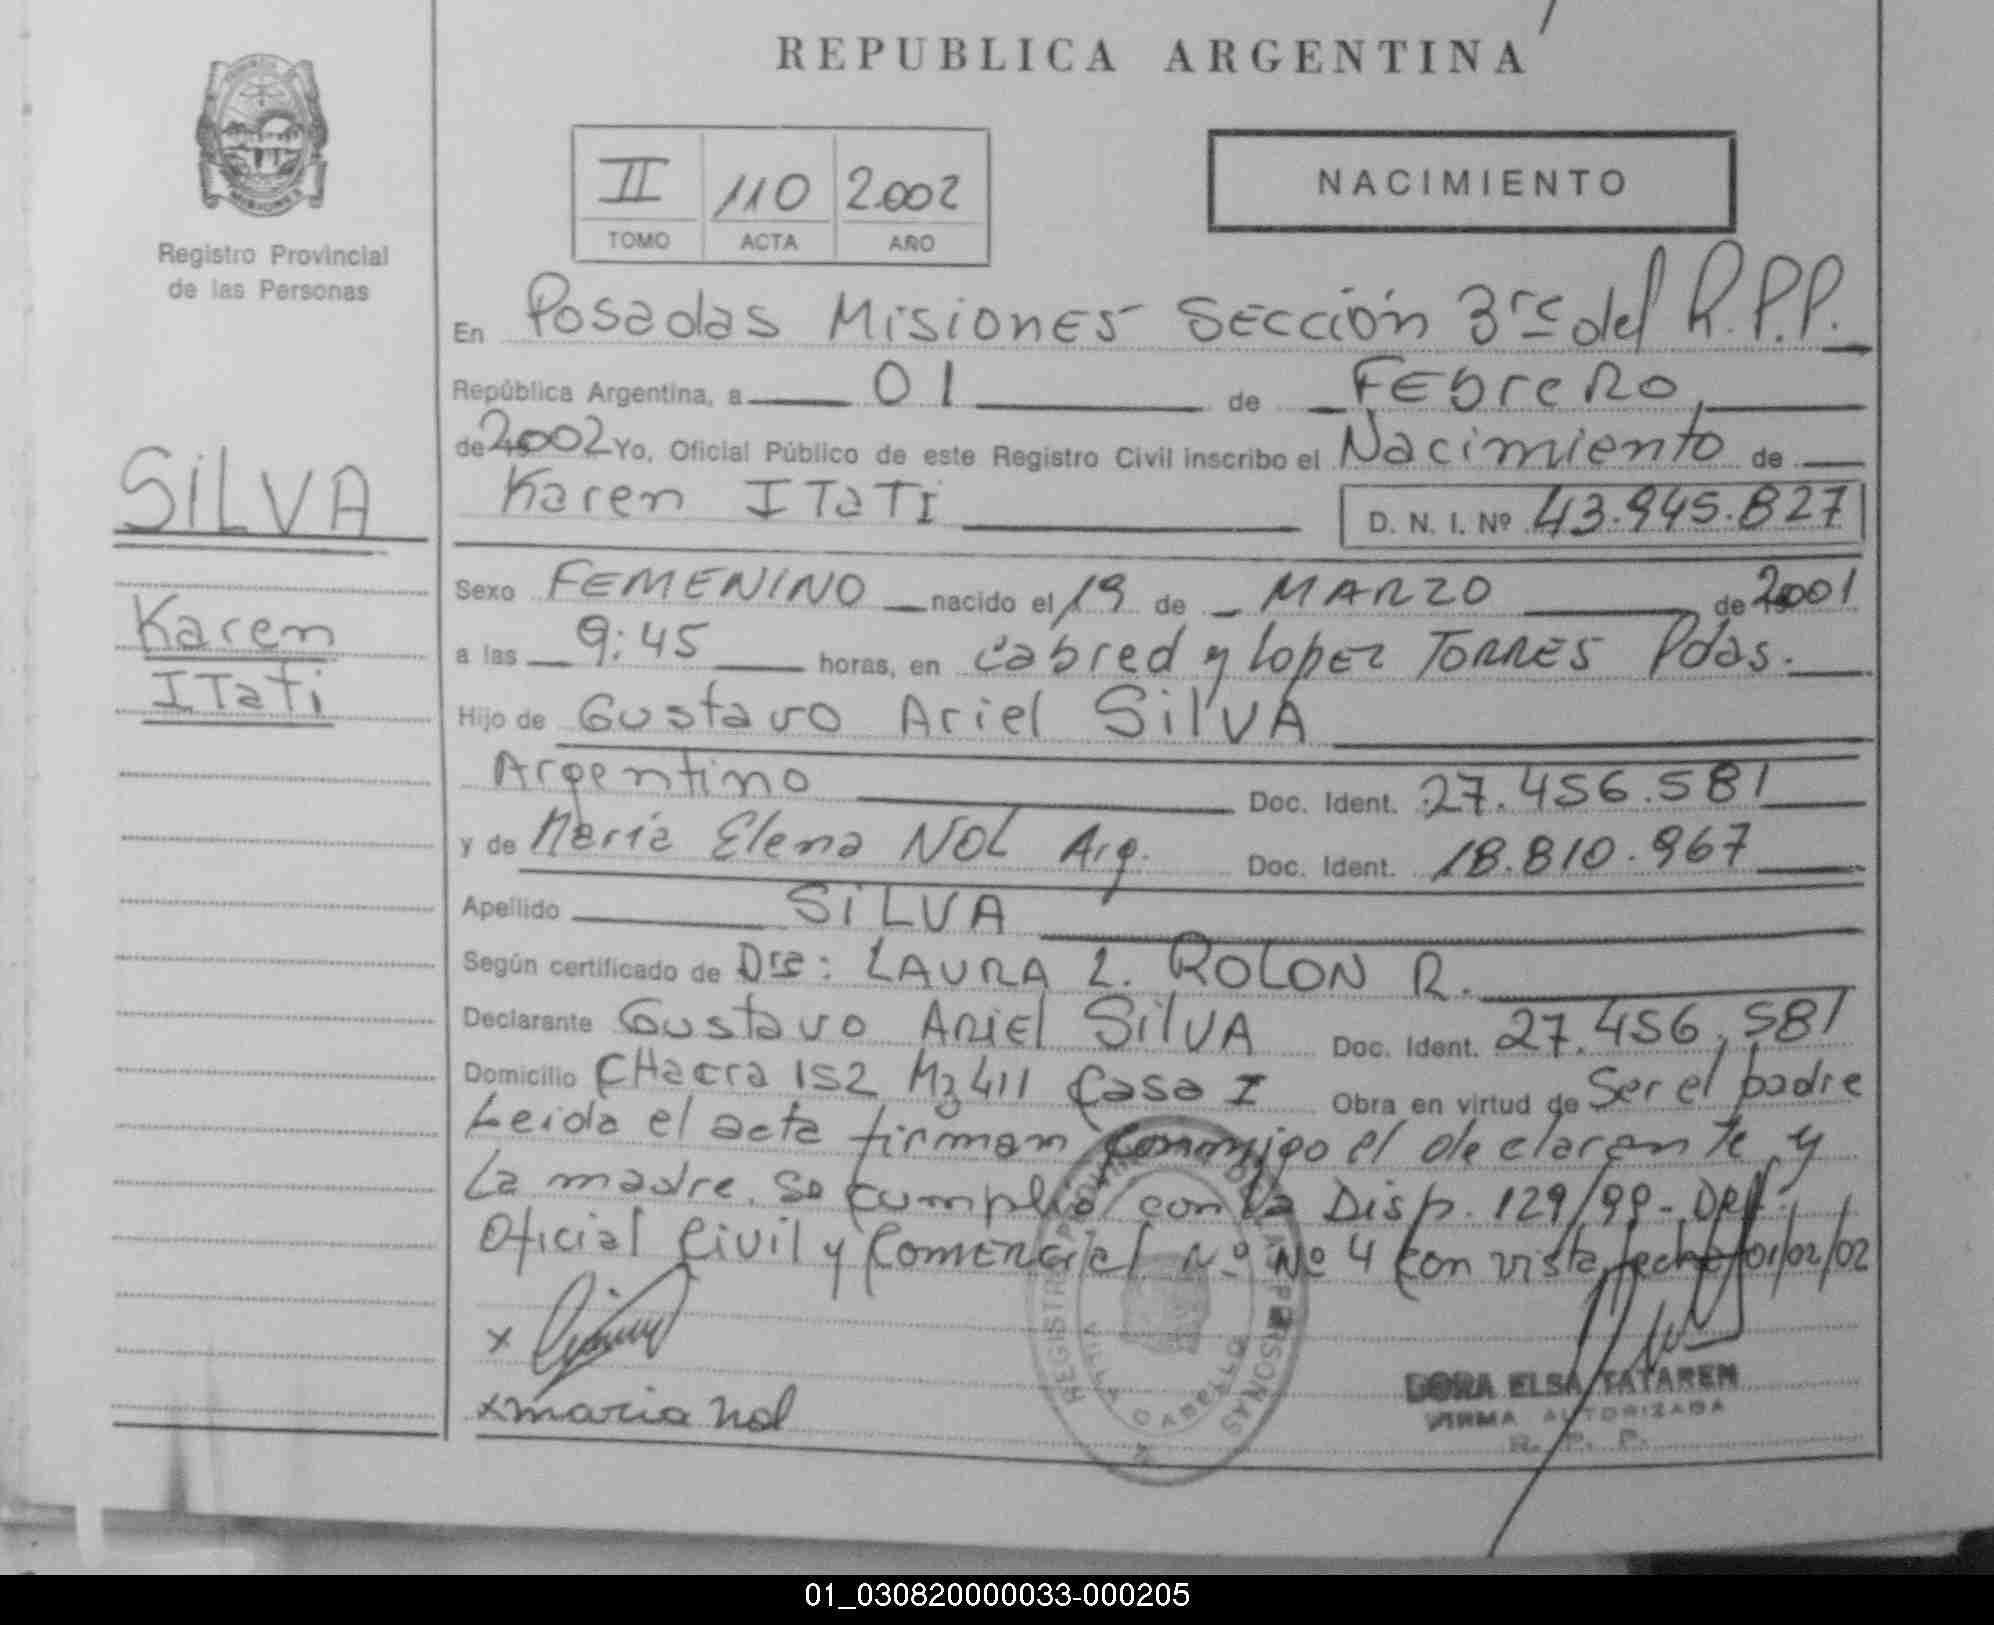 REPUBLICA ARGENTINA
II 110 2002
TOMO ACTA AÑO
NACIMIENTO
Registro Provincial
de las Personas
En Posadas Misiones Sección 3ra del R.P.P.
República Argentina, a 01 de Febrero
de 2002 Yo, Oficial Público de este Registro Civil inscribo el Nacimiento de
Karen ITaTi D. N. I. Nº 43.945.827
SILVA
Karen
ITati
Sexo FEMENINO nacido el 19 de MARZO de 2001
a las 9:45 horas, en Cabred y Lopez TORRES Pdas.
Hijo de Gustavo Ariel SilVA
Argentino Doc. Ident. 27.456.581
y de María Elena NOL Arg. Doc. Ident. 18.810.967
Apellido SILVA
Según certificado de Dra: LAURA L. ROLON R.
Declarante Gustavo ARIEL SilVA Doc. Ident. 27.456.581
Domicilio CHacra 152 Mz 411 Casa I Obra en virtud de Ser el padre
Leida el acta firman conmigo el declarante y
La madre. Se cumplio con la Disp. 129/99-
Oficial Civil y Comercial Nº Nº 4 con vista fecha 01/02/02
x
x maria nol
REGISTRO PROVINCIAL DE LAS PERSONAS
VILLA CABELLO
DORA ELSA TATAREN
FIRMA AUTORIZADA
R. P. P.
01_030820000033-000205